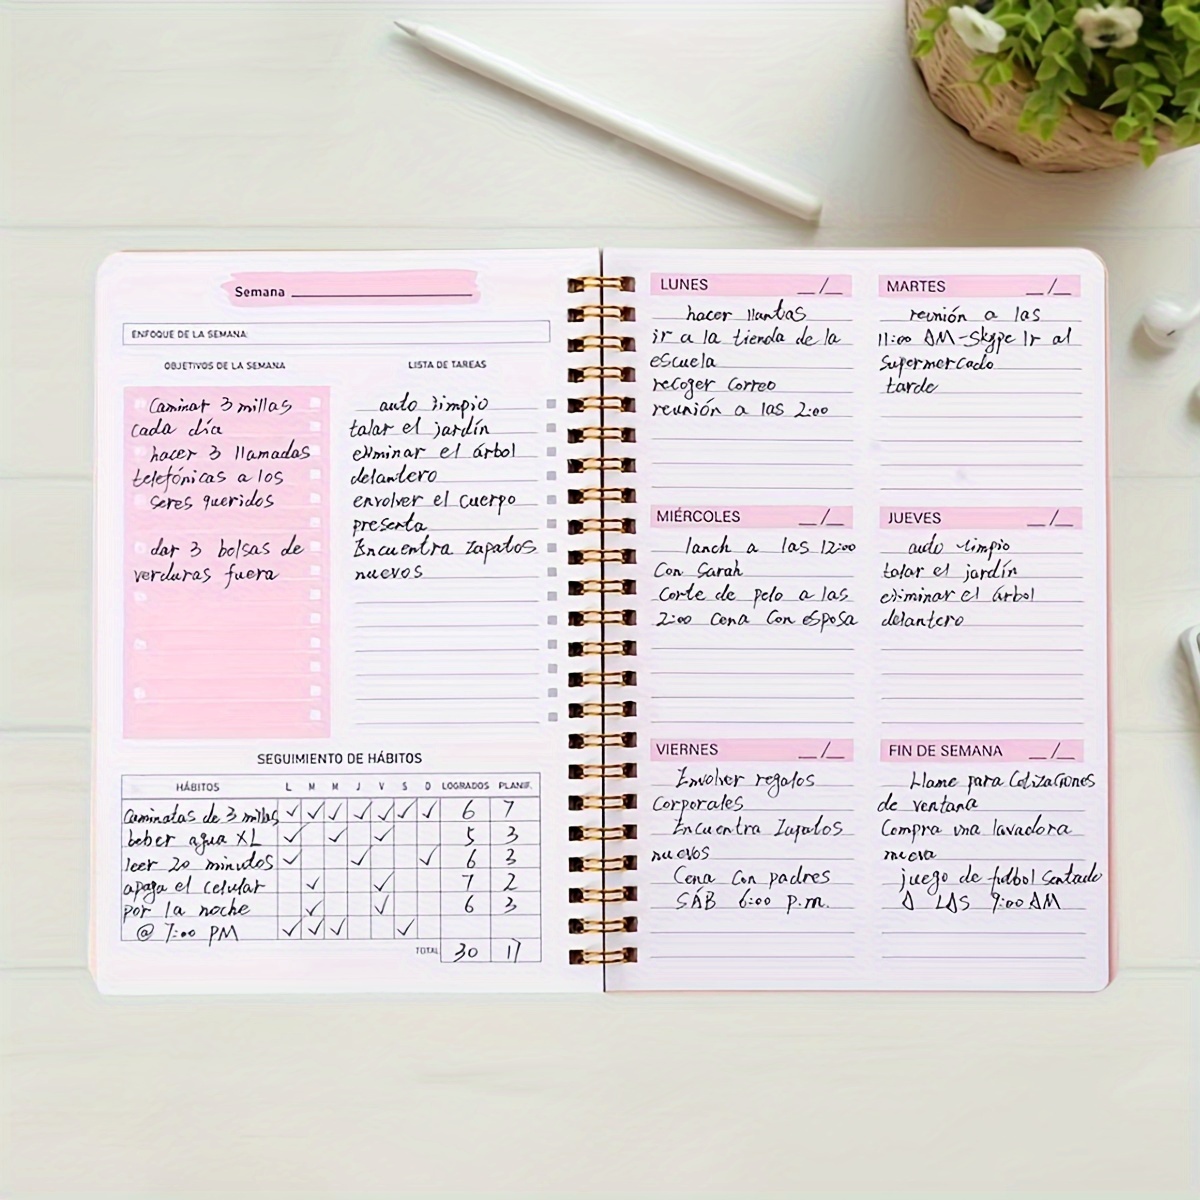 Semana
ENFOQUE DE LA SEMANA:
OBJETIVOS DE LA SEMANA
Caminar 3 millas
cada día
hacer 3 llamadas
telefónicas a los
seres queridos
dar 3 bolsas de
verduras fuera
LISTA DE TAREAS
auto limpio
talar el jardín
eliminar el árbol
delantero
envolver el cuerpo
presenta
Encuentra zapatos
nuevos
SEGUIMIENTO DE HÁBITOS
HÁBITOS L M M J V S D LOGRADOS PLANIF.
Caminatas de 3 millas ✓ ✓ ✓ ✓ ✓ ✓ ✓ 6 7
beber agua XL ✓ ✓ ✓ 5 3
leer 20 minutos ✓ ✓ ✓ 6 3
apaga el celular ✓ ✓ 7 2
por la noche ✓ ✓ 6 3
@ 7:00 PM ✓ ✓ ✓ ✓
TOTAL 30 17
LUNES __/__
hacer llantas
ir a la tienda de la
escuela
recoger Correo
reunión a las 2:00
MARTES __/__
reunión a las
11:00 AM-Skype Ir al
Supermercado
tarde
MIÉRCOLES __/__
lanch a las 12:00
Con Sarah
Corte de pelo a las
2:00 Cena Con esposa
JUEVES __/__
auto limpio
talar el jardín
eliminar el árbol
delantero
VIERNES __/__
Envolver regalos
Corporales
Encuentra Zapatos
nuevos
Cena Con padres
SÁB 6:00 p.m.
FIN DE SEMANA __/__
Llame para Cotizaciones
de ventana
Compra una lavadora
nueva
juego de futbol Sentado
A LAS 9:00 AM